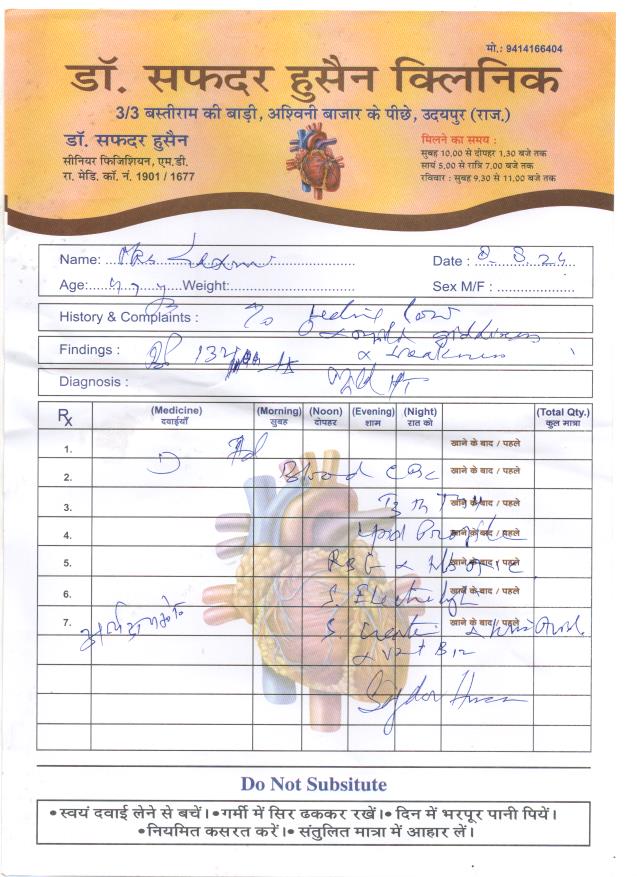 मो.: 9414166404
डॉ. सफदर हुसैन क्लिनिक
3/3 बस्तीराम की बाड़ी, अश्विनी बाजार के पीछे, उदयपुर (राज.)
डॉ. सफदर हुसैन
सीनियर फिजिशियन, एम.डी.
रा. मेडि. कॉ. नं. 1901 / 1677
मिलने का समय :
सुबह 10.00 से दोपहर 1.30 बजे तक
सायं 5.00 से रात्रि 7.00 बजे तक
रविवार : सुबह 9.30 से 11.00 बजे तक
Name: Mrs
Date : 8.8.24
Age: Weight:
Sex M/F :
History & Complaints : feeling low
& mild giddiness
Findings : & weakness
Diagnosis : mild HT
Rx (Medicine) (Morning) (Noon) (Evening) (Night) (Total Qty.)
दवाईयाँ सुबह दोपहर शाम रात को कुल मात्रा
1. Ad खाने के बाद / पहले
2. Blood CBC खाने के बाद / पहले
3. खाने के बाद / पहले
4. Lipid Profile खाने के बाद / पहले
5. खाने के बाद / पहले
6. S. Electrolyte खाने के बाद / पहले
7. S. Creatin & Uric Acid. खाने के बाद / पहले
& Vit B12
Do Not Subsitute
•स्वयं दवाई लेने से बचें।•गर्मी में सिर ढककर रखें।•दिन में भरपूर पानी पियें।
•नियमित कसरत करें।•संतुलित मात्रा में आहार लें।